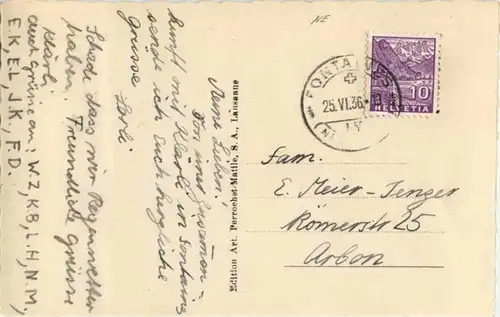 Meine Lieben!
Von einer Zusammen-
kunft mit Klärli in Fontains
sende ich Euch herzliche
Grüsse
Schade, dass wir Regenwetter
haben. Freundliche Grüsse
Klärli
auch Grüsse an: W.Z, K.B, L.H, N.M,
E.K, E.L, J.K, F.D.
Edition Art. Perrochet-Matile, S. A., Lausanne
NE
FONTAINES
25.VI.36
HELVETIA
10
Fam.
E. Meier-Zenger
Römerstr 25
Arbon